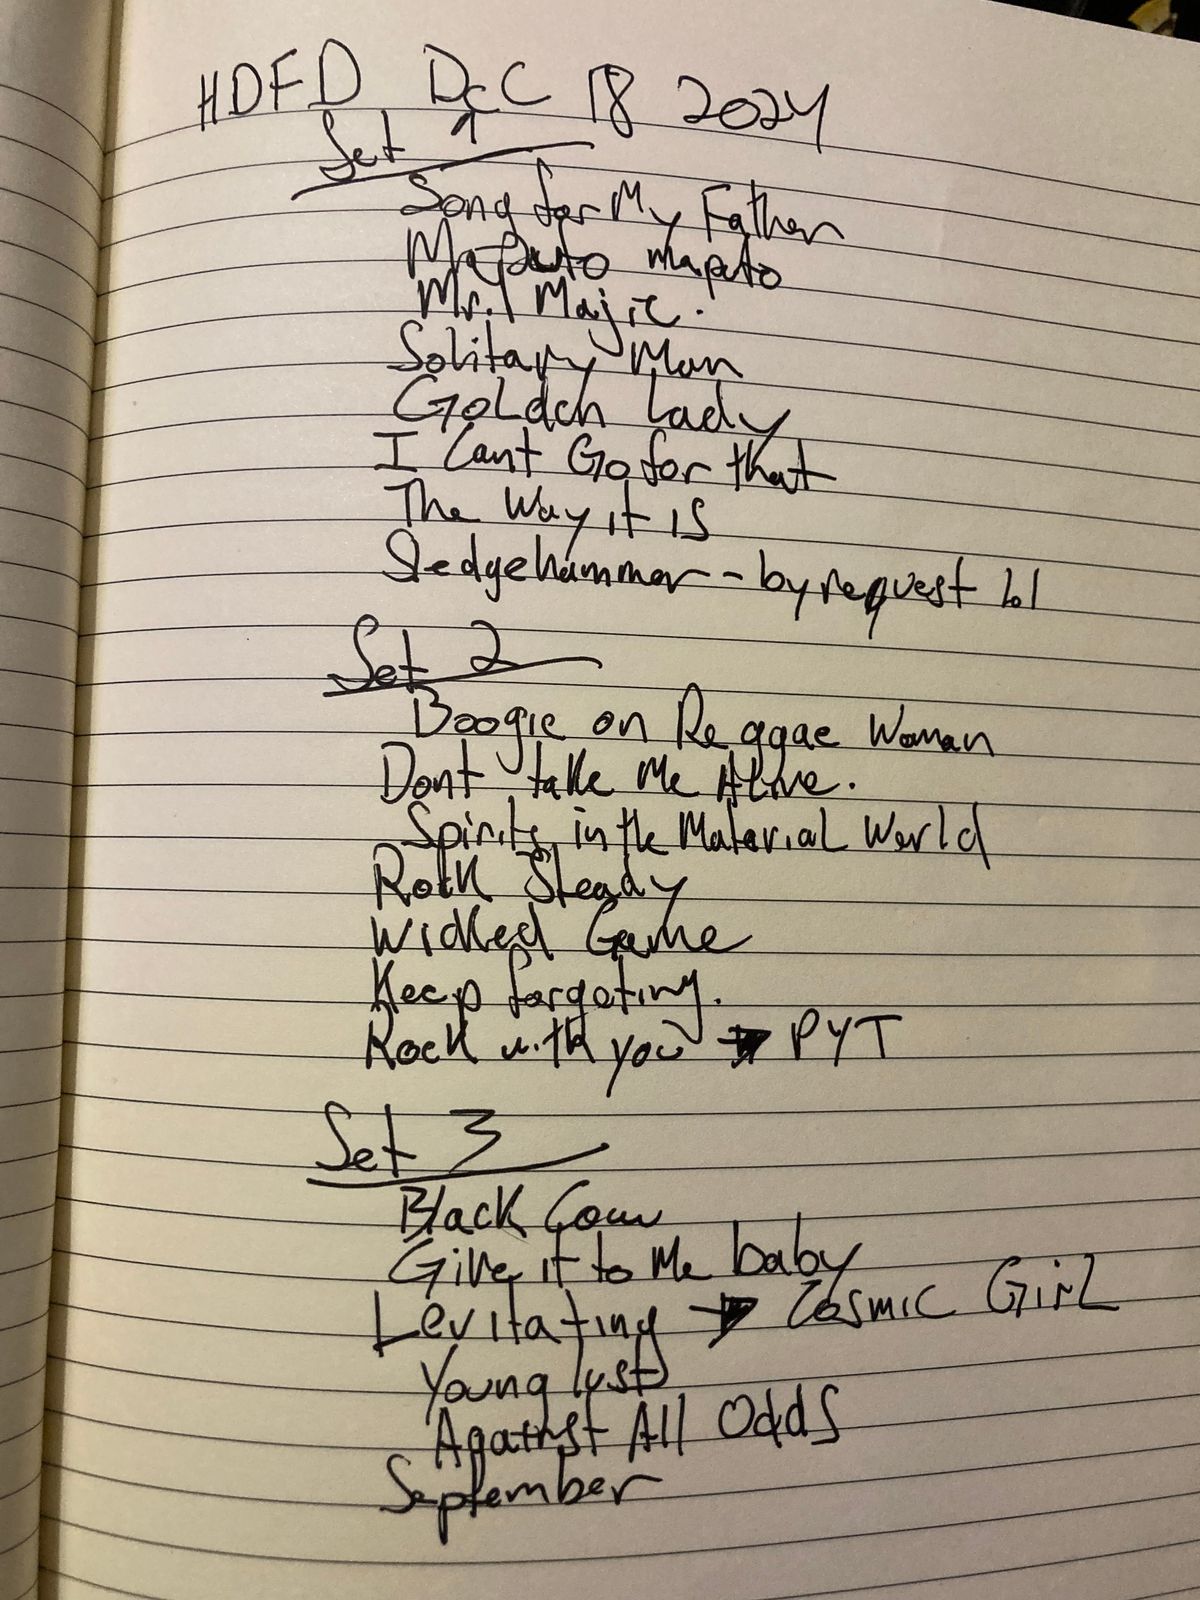 HDFD Dec 18 2024
Set 1
Song for My Father
Maputo maputo
Mr. Majic.
Solitary Man
Golden Lady
I Cant Go for that
The Way it is
Sledgehammer - by request lol
Set 2
Boogie on Reggae Woman
Dont take Me Alive.
Spirits in the Material World
Rock Steady
Wicked Game
Keep forgeting.
Rock with you → PYT
Set 3
Black Cow
Give it to Me baby
Levitating → Cosmic Girl
Young lust
Against All Odds
September